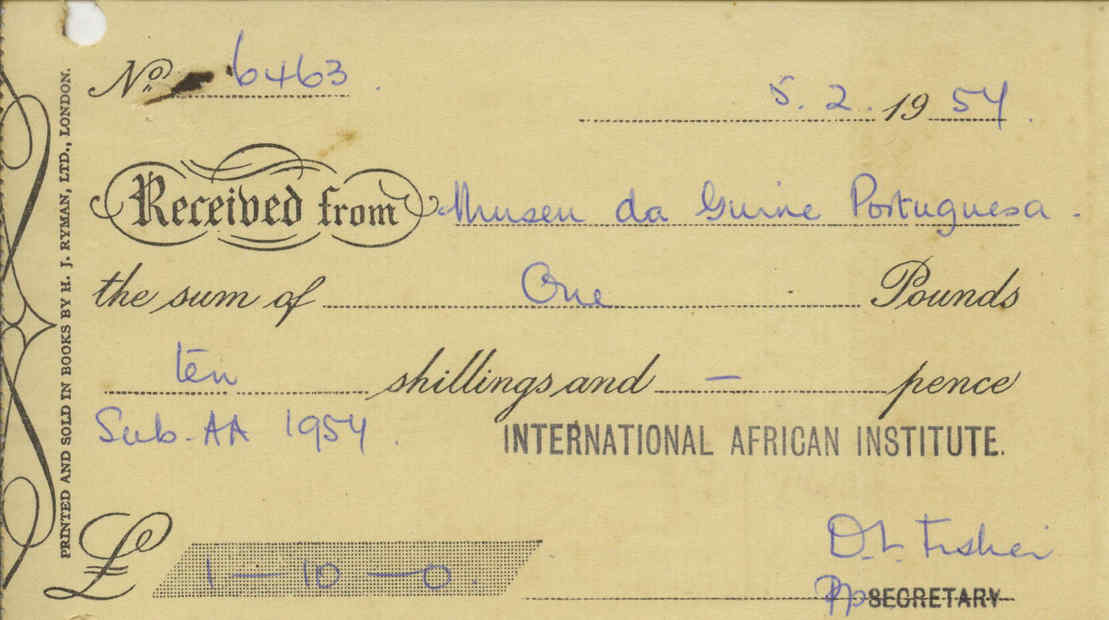 No. 6463.
5. 2. 19 54.
Received from Museu da Guine Portuguesa.
the sum of One Pounds
ten shillings and — pence
Sub. AA 1954.
INTERNATIONAL AFRICAN INSTITUTE.
£ 1 — 10 — 0.
D.L. Fisher
pp SECRETARY
PRINTED AND SOLD IN BOOKS BY H. J. RYMAN, LTD., LONDON.